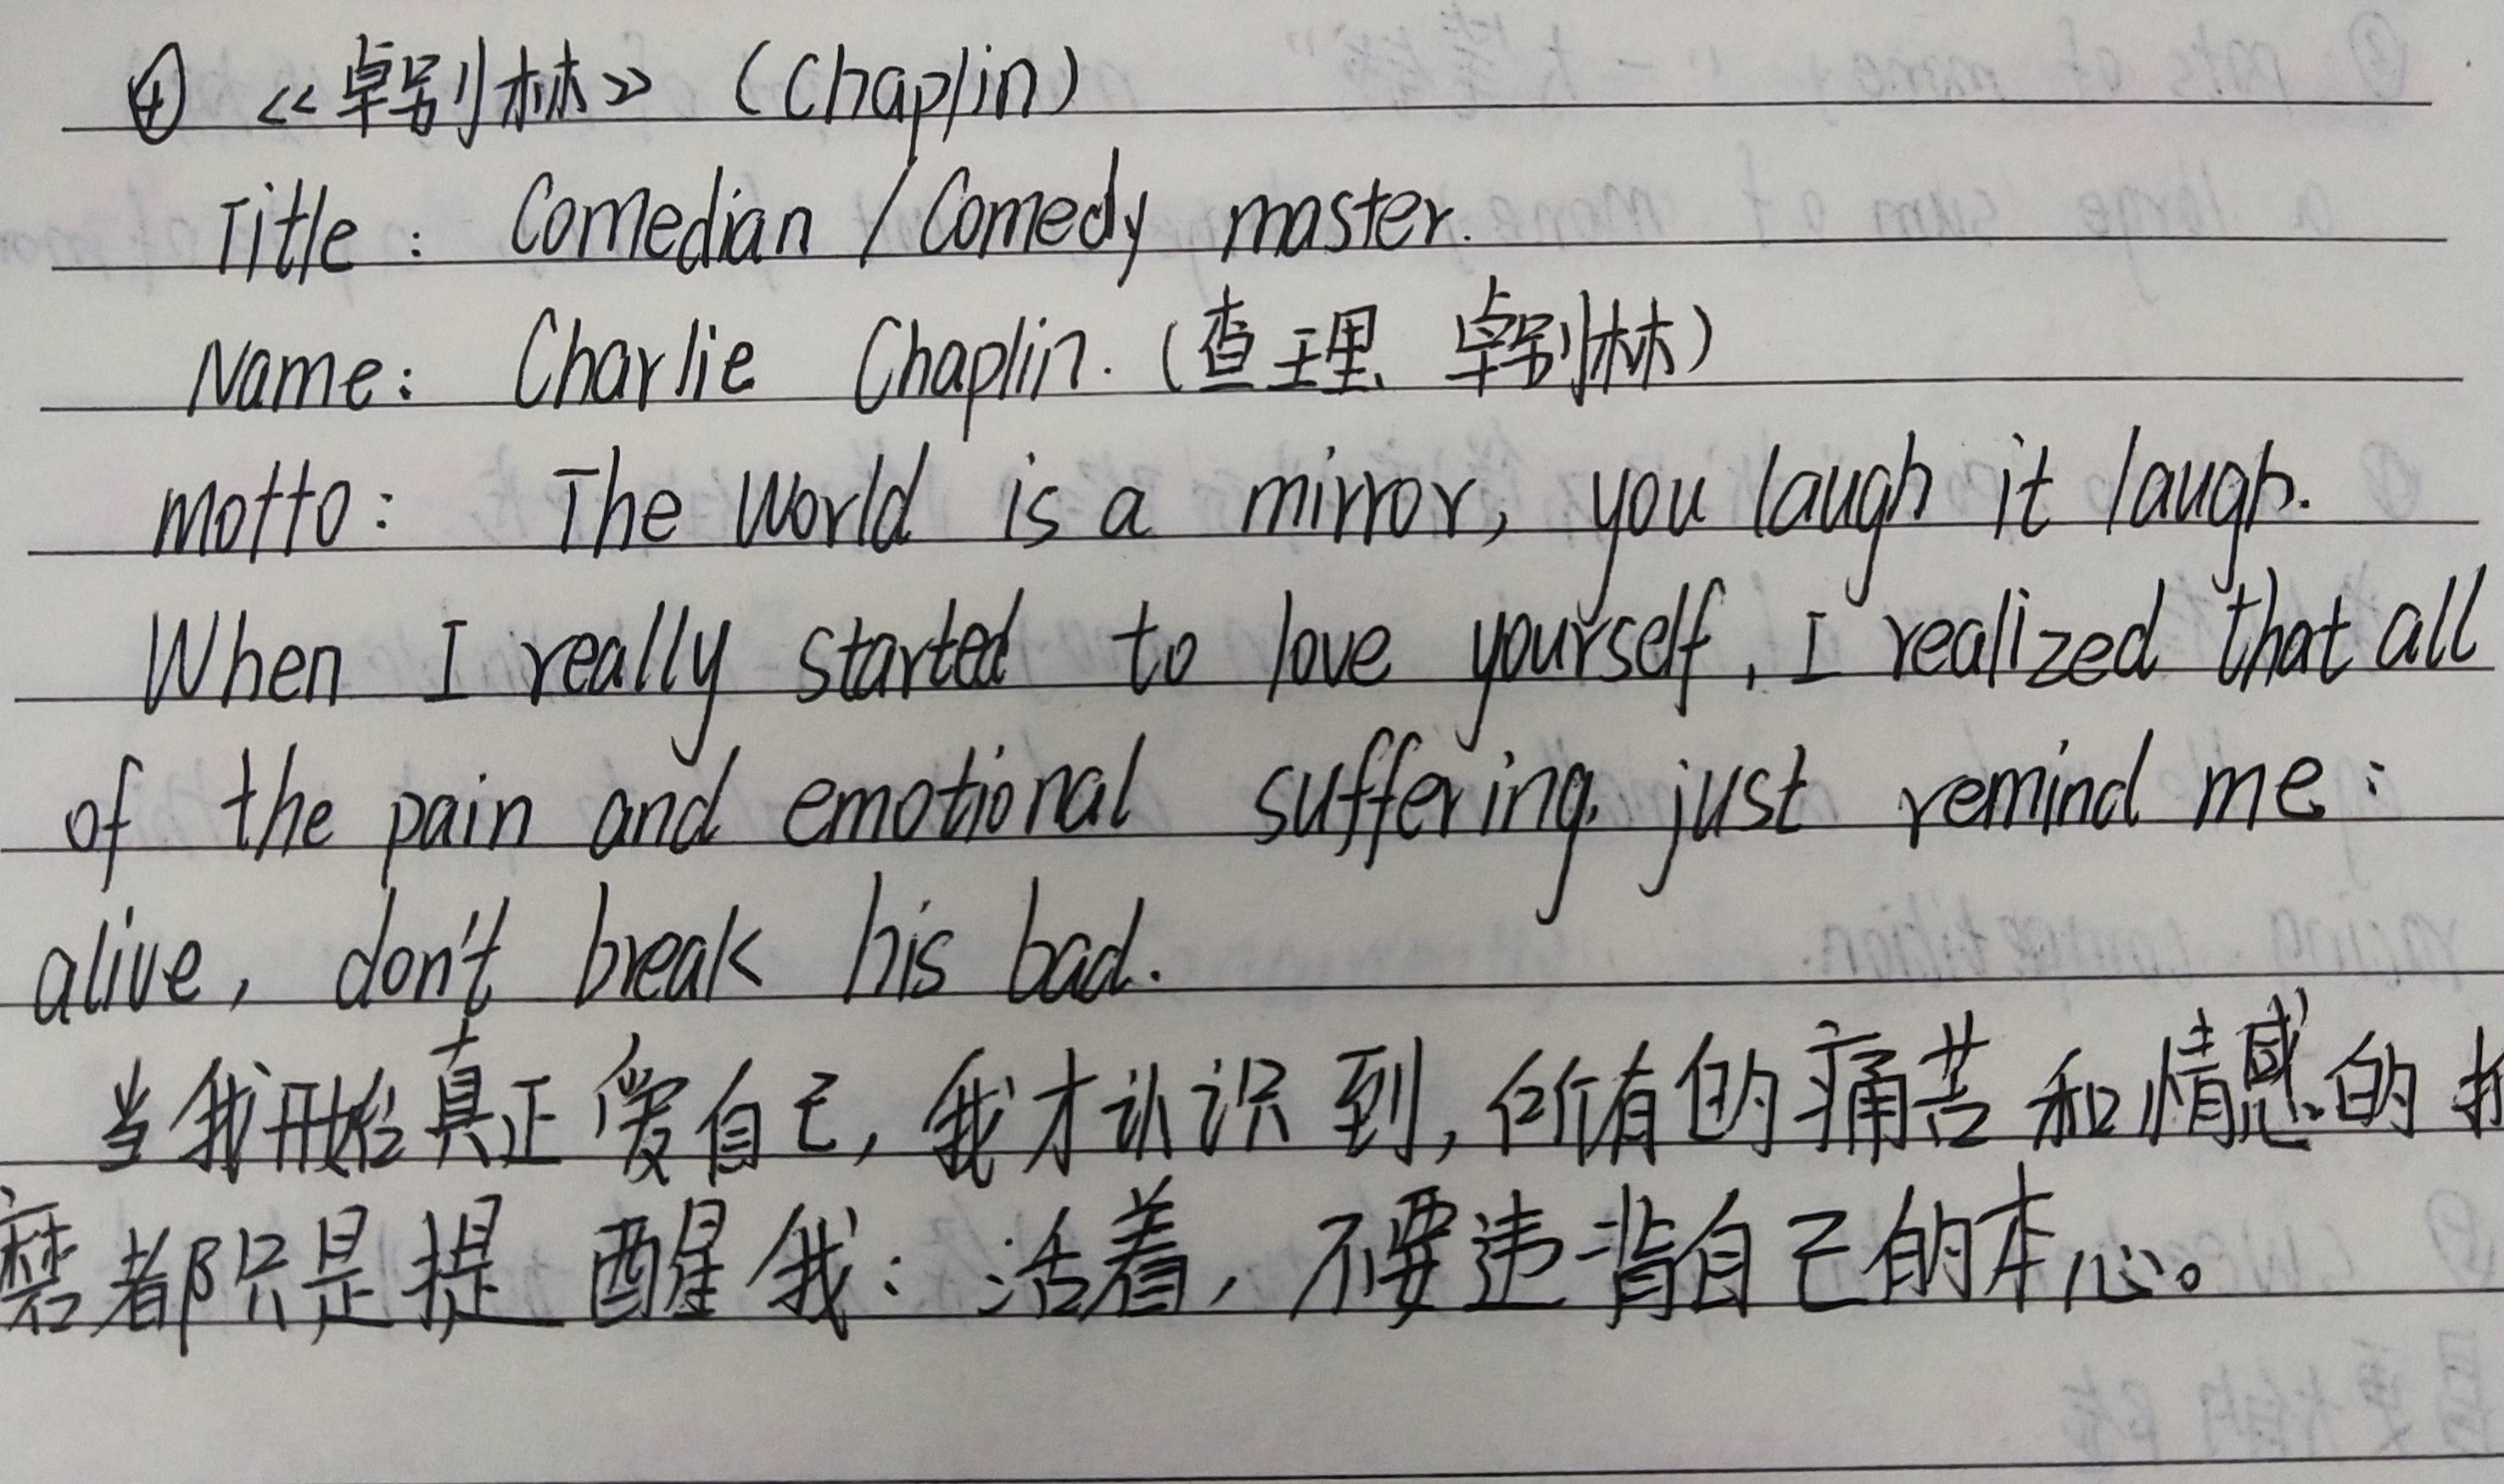 ④ 《卓别林》 (Chaplin)
Title : Comedian / Comedy master.
Name: Charlie Chaplin. (查理、卓别林)
motto: The World is a mirror, you laugh it laugh.
When I really started to love yourself, I realized that all
of the pain and emotional suffering, just remind me :
alive, don't break his bad.
当我开始真正爱自己, 我才认识到, 所有的痛苦和情感的
磨都只是提醒我: 活着, 不要违背自己的本心。